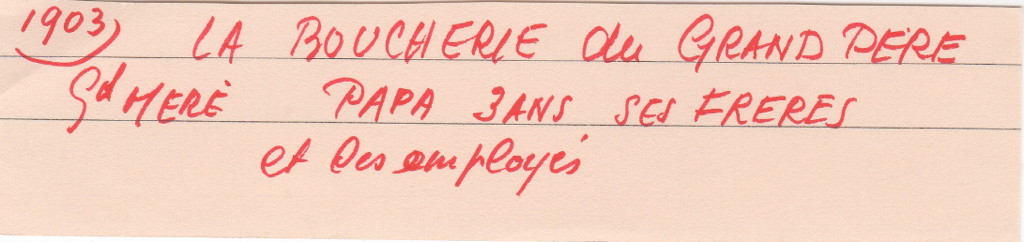 1903) LA BOUCHERIE du GRAND PERE
Gd MERE PAPA 3ANS SES FRERES
et les employés